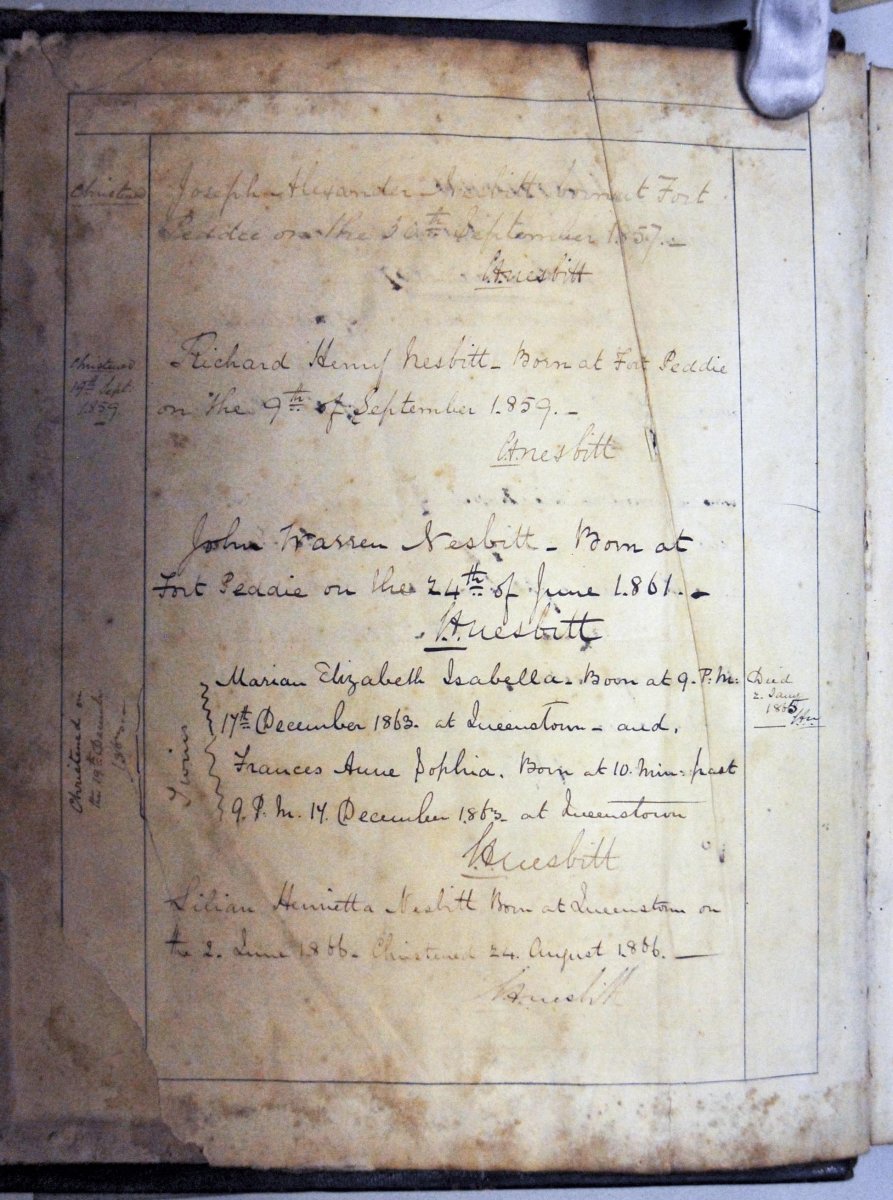 Christened
Joseph Alexander Nesbitt born at Fort
Peddie on the 30th September 1857. –
Nesbitt
Christened
19th Sept.
1859
Richard Henry Nesbitt – Born at Fort Peddie
on the 9th of September 1859. –
Nesbitt
John Warren Nesbitt – Born at
Fort Peddie on the 24th of June 1861. –
Nesbitt
Christened on
the 19th December
1863
Twins
Marian Elizabeth Isabella – Born at 9. P. M:
17th December 1863. at Queenstown – and,
Frances Anne Sophia. Born at 10. Min: past
9. P. M. 17. December 1863 – at Queenstown
Nesbitt
Died
1865
Lilian Henrietta Nesbitt Born at Queenstown on
the 2. June 1866 – Christened 24. August 1866. —
Nesbitt